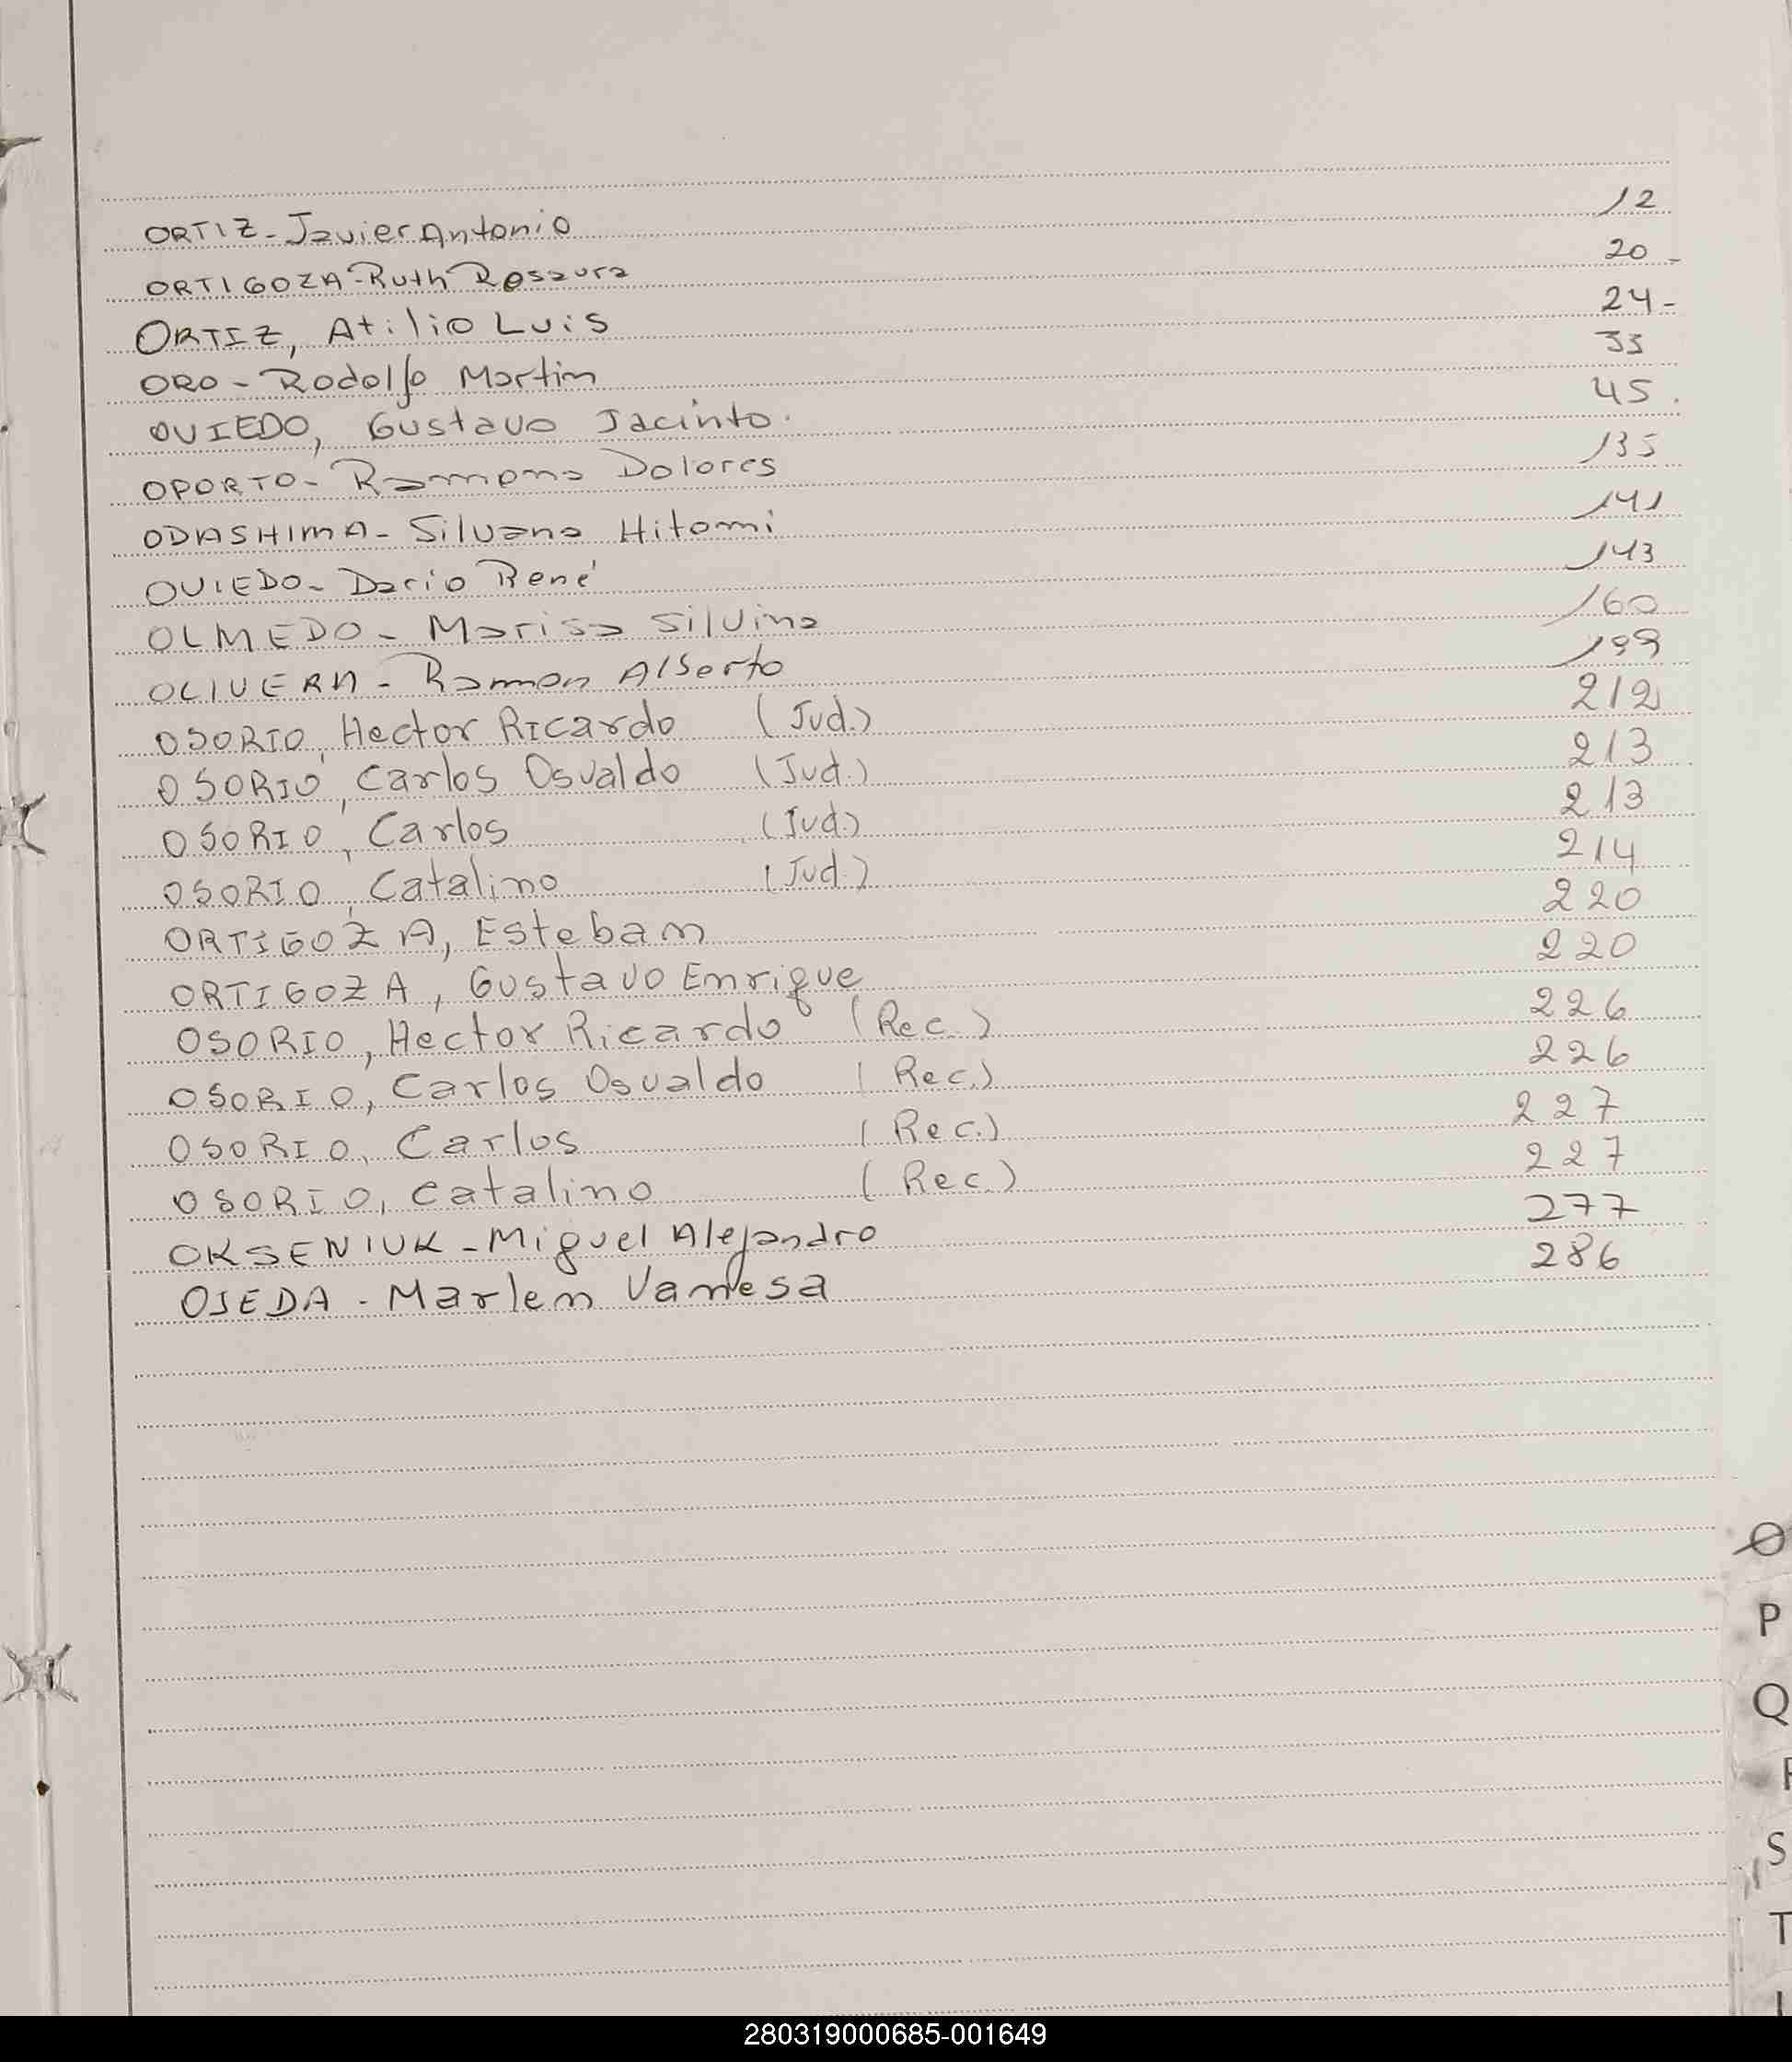 ORTIZ - Javier Antonio 12
ORTIGOZA - Ruth Rosaura 20 -
ORTIZ, Atilio Luis 24 -
ORO - Rodolfo Martin 33
OVIEDO, Gustavo Jacinto. 45.
OPORTO - Ramona Dolores 135
ODASHIMA - Silvana Hitomi 141
OVIEDO - Dario René 143
OLMEDO - Marisa Silvina 160
OLIVERA - Ramon Alberto 199
OSORIO, Hector Ricardo (Jud.) 212
OSORIO, Carlos Osvaldo (Jud.) 213
OSORIO, Carlos (Jud.) 213
OSORIO, Catalino (Jud.) 214
ORTIGOZA, Esteban 220
ORTIGOZA, Gustavo Enrique 220
OSORIO, Hector Ricardo (Rec.) 226
OSORIO, Carlos Osvaldo (Rec.) 226
OSORIO, Carlos (Rec.) 227
OSORIO, Catalino (Rec.) 227
OKSENIUK - Miguel Alejandro 277
OJEDA - Marlen Vanesa 286
O
P
Q
S
T
280319000685-001649